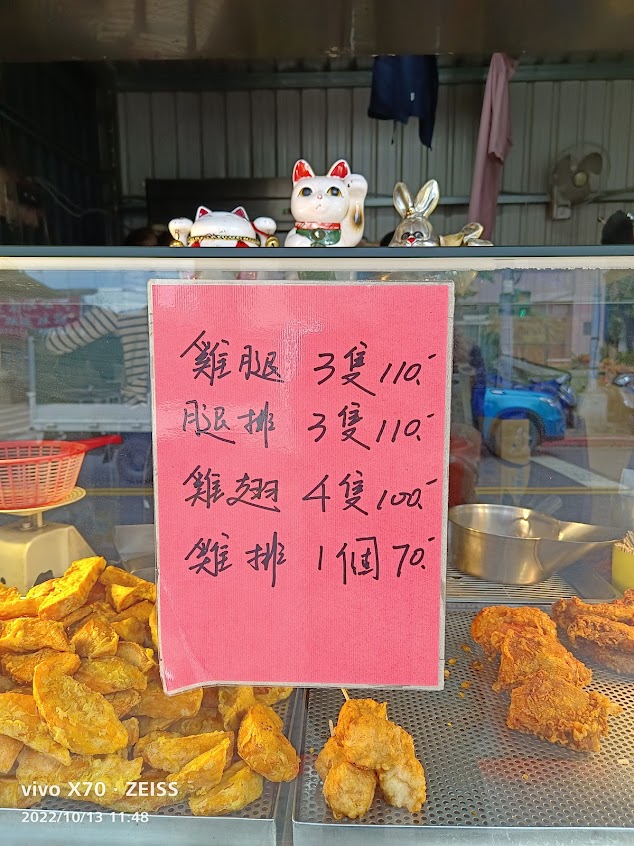 雞腿 3隻110.-
腿排 3隻110.-
雞翅 4隻100.-
雞排 1個70.-
vivo X70 · ZEISS
2022/10/13 11:48